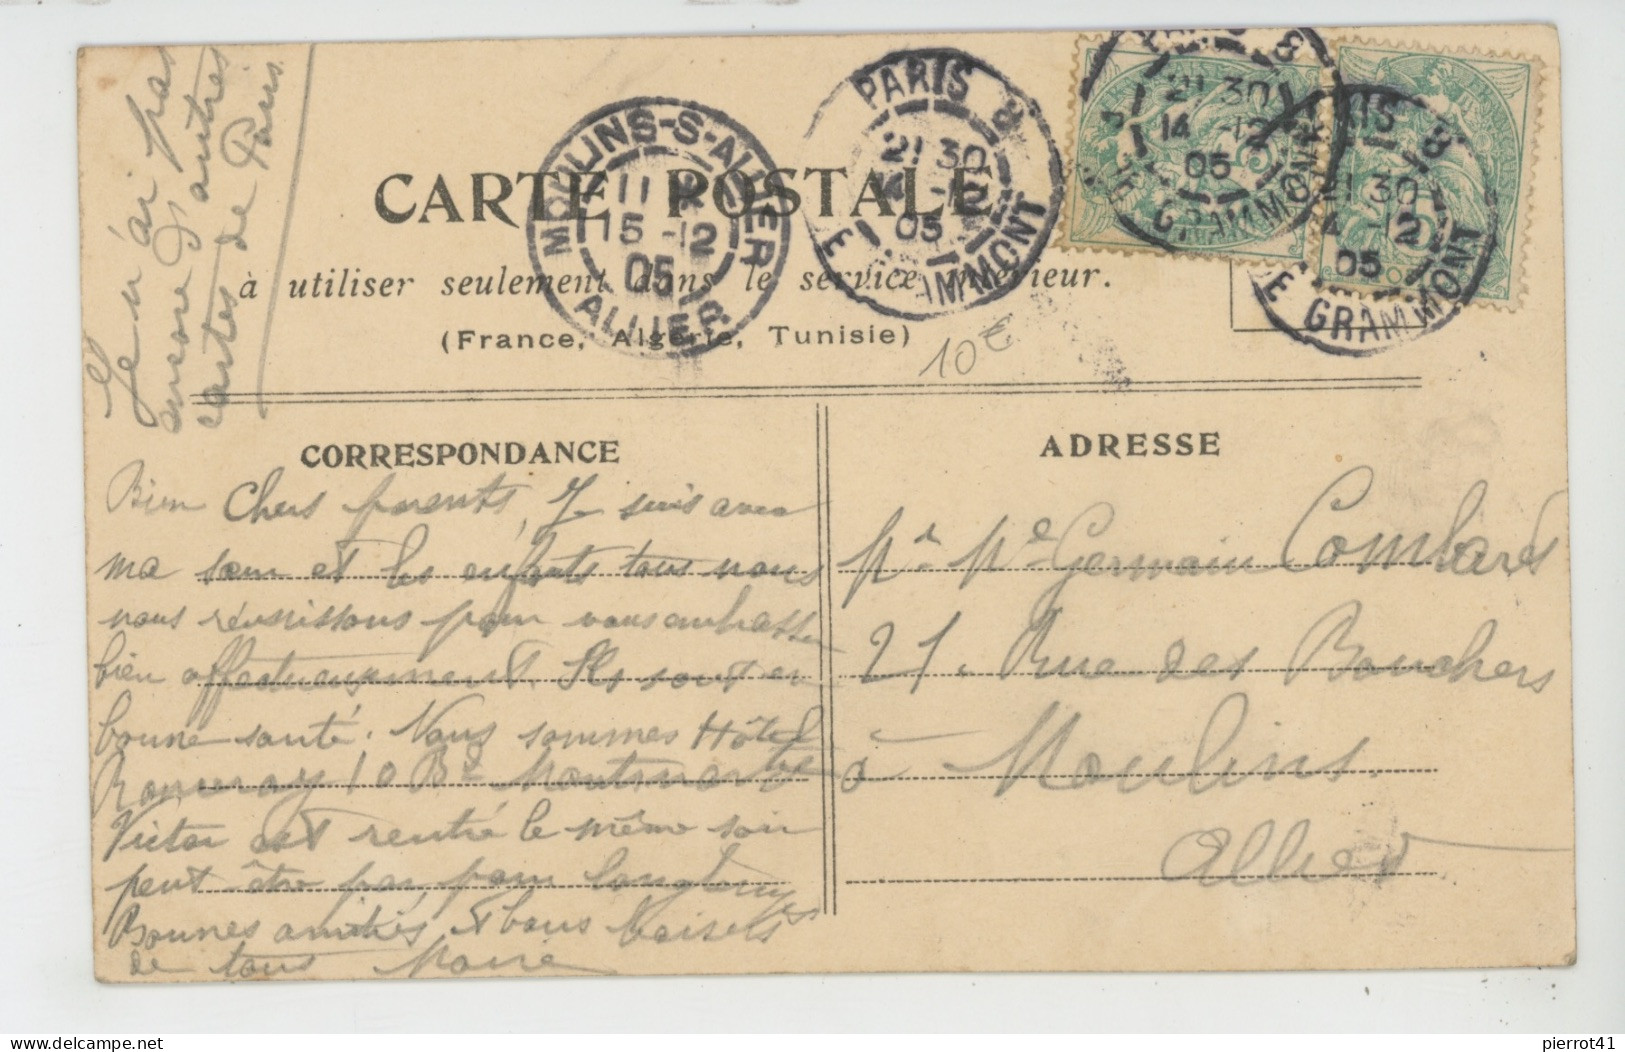 Je n'ai pas
encore d'autres
cartes de Paris
MOULINS-S-ALLIER
11
15-12
05
ALLIER
PARIS 8
21 30
14-12
05
R. GRAMMONT
PARIS 8
21 30
14-12
05
GRAMMONT
PARIS 8
21 30
14-12
05
E GRAMMONT
CARTE POSTALE
à utiliser seulement dans le service intérieur.
(France, Algérie, Tunisie)
10€
CORRESPONDANCE
Bien Chers parents, Je suis avec
ma sœur et les enfants tous nous
nous réunissons pour vous embrasser
bien affectueusement. Ils sont en
bonne santé. Nous sommes Hôtel
Ronceray 10 Bd Montmartre
Victor est rentré le même soir
peut être pas pour longtemps
Bonnes amitiés et bons baisers
de tous Marie
ADRESSE
Mr Me Germain Combarés
21. Rue des Bouchers
à Moulins.
Allier
pierrot41